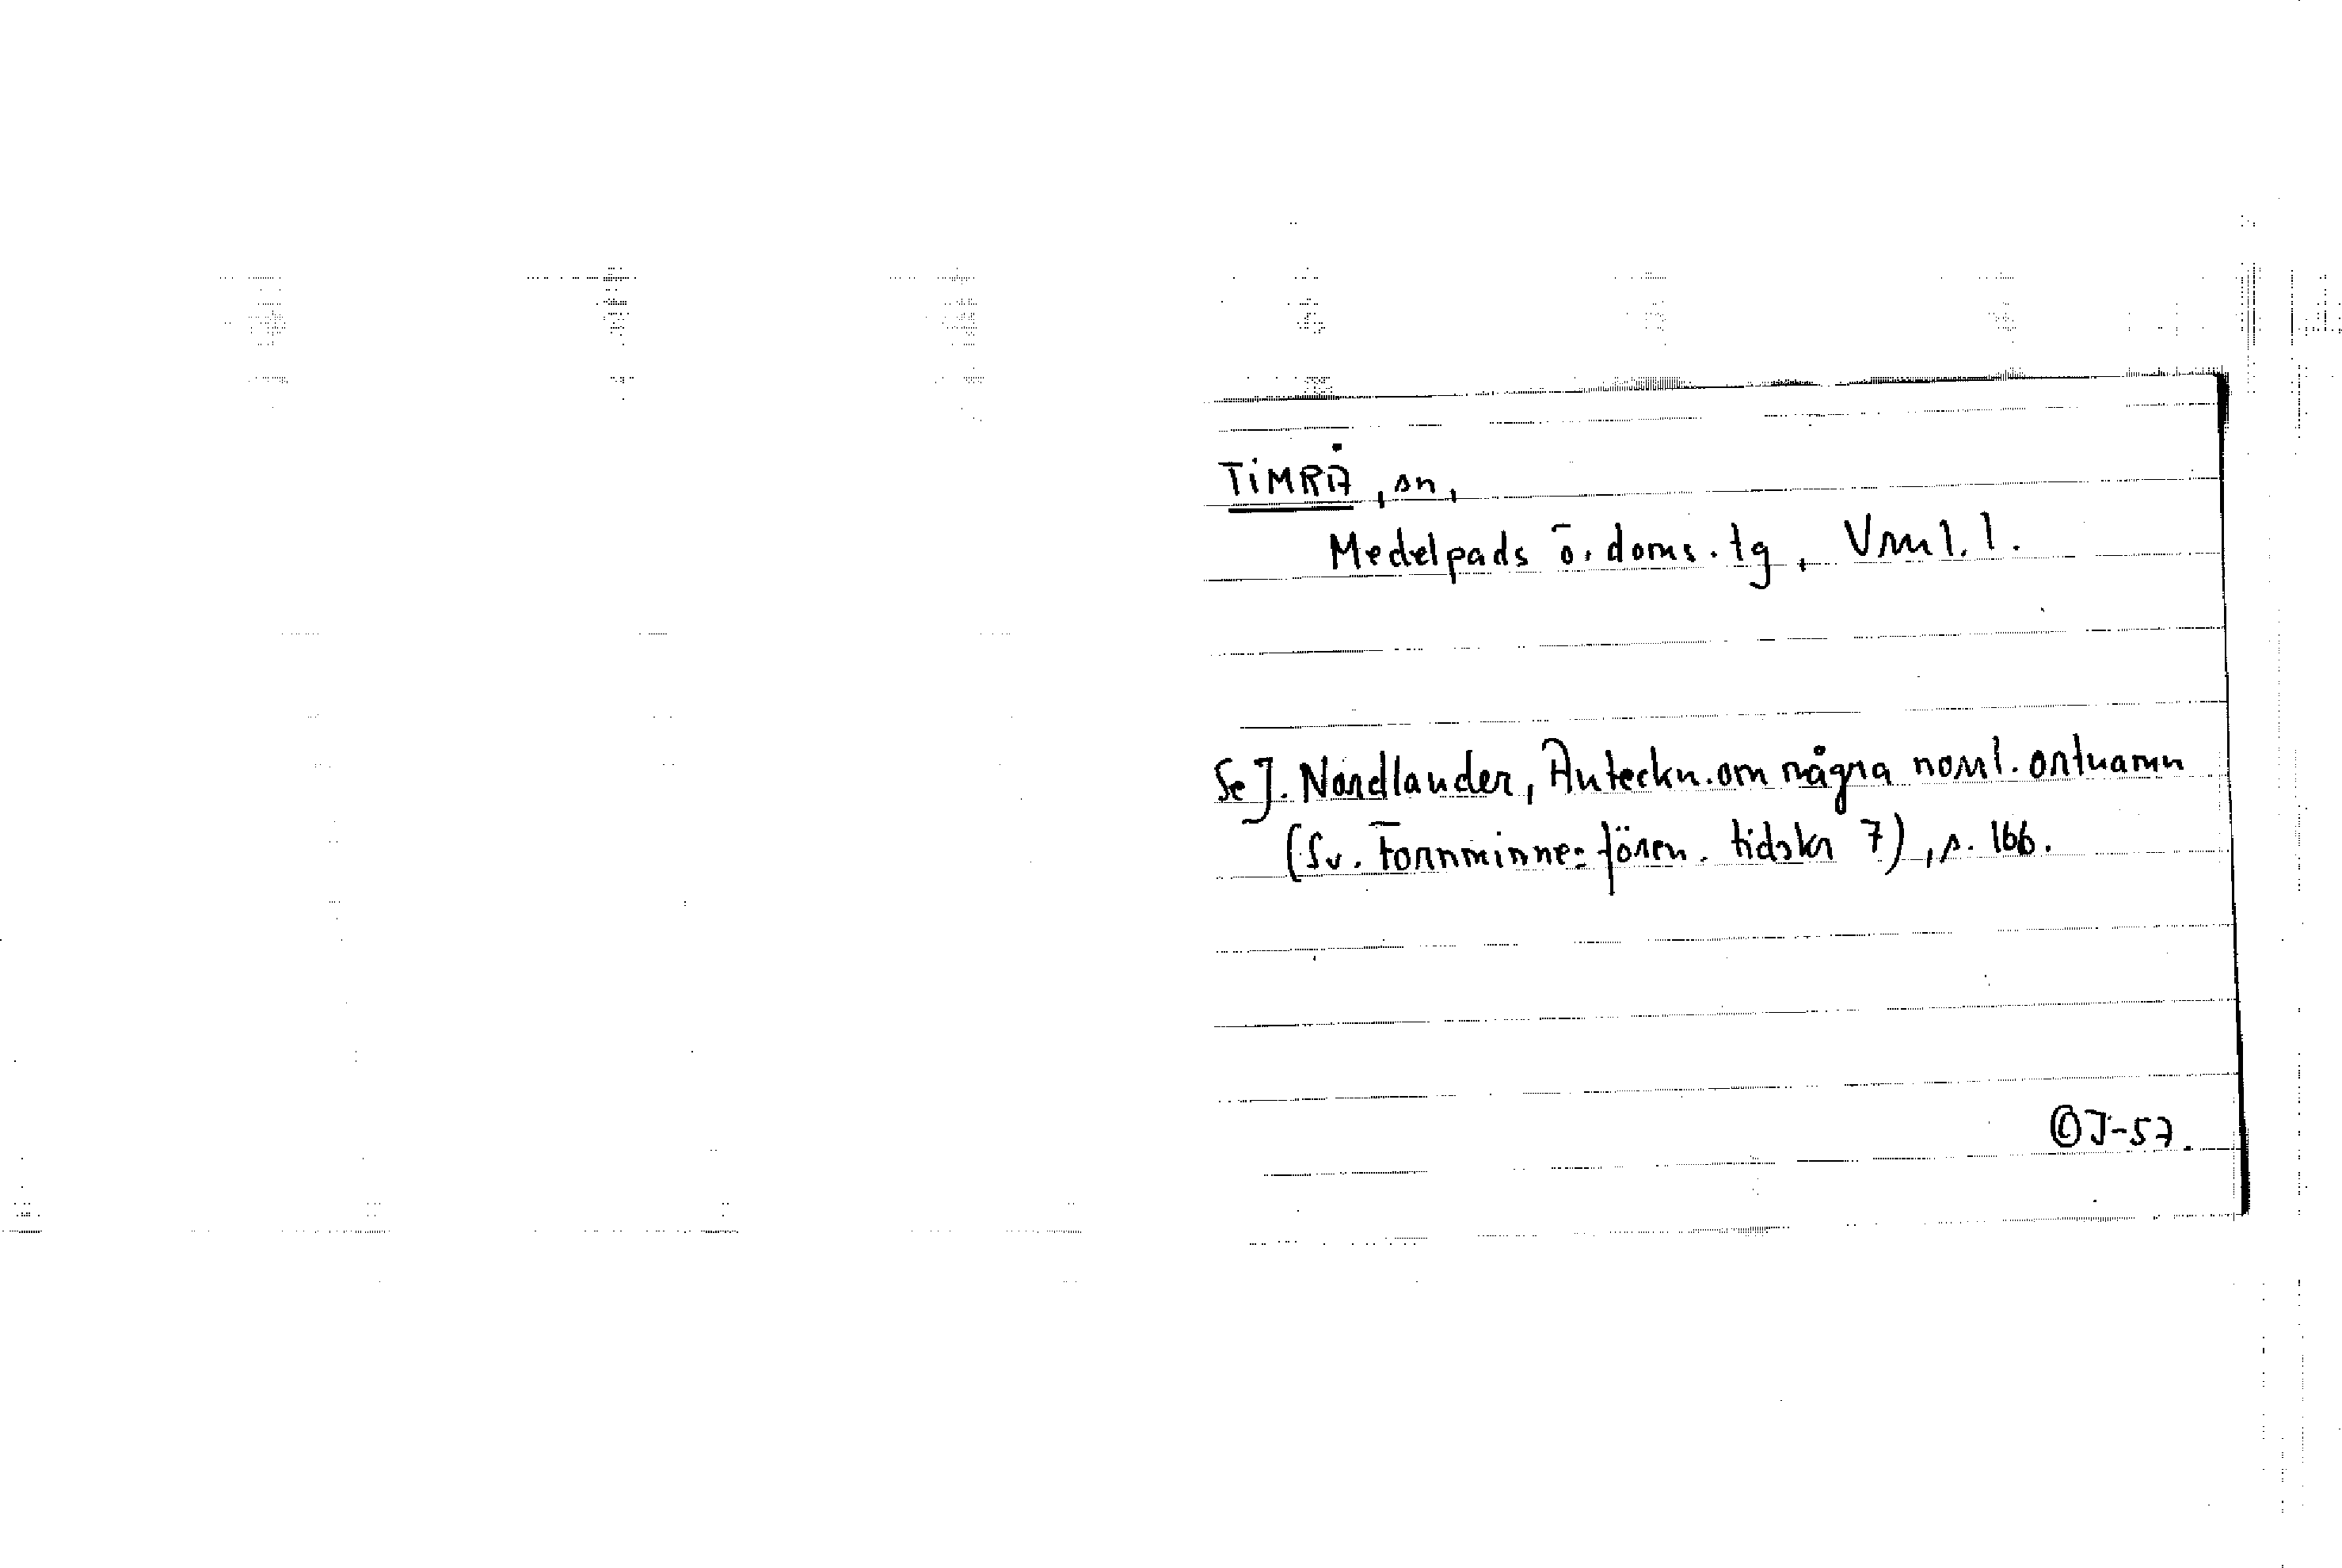 TIMRÅ, sn,
Medelpads ö. doms. tg, Vrnl. l.
Se J. Nordlander, Anteckn. om några norrl. ortnamn
(Sv. Fornminnesfören. tidskr 7), s. 166.
ÖJ-57.